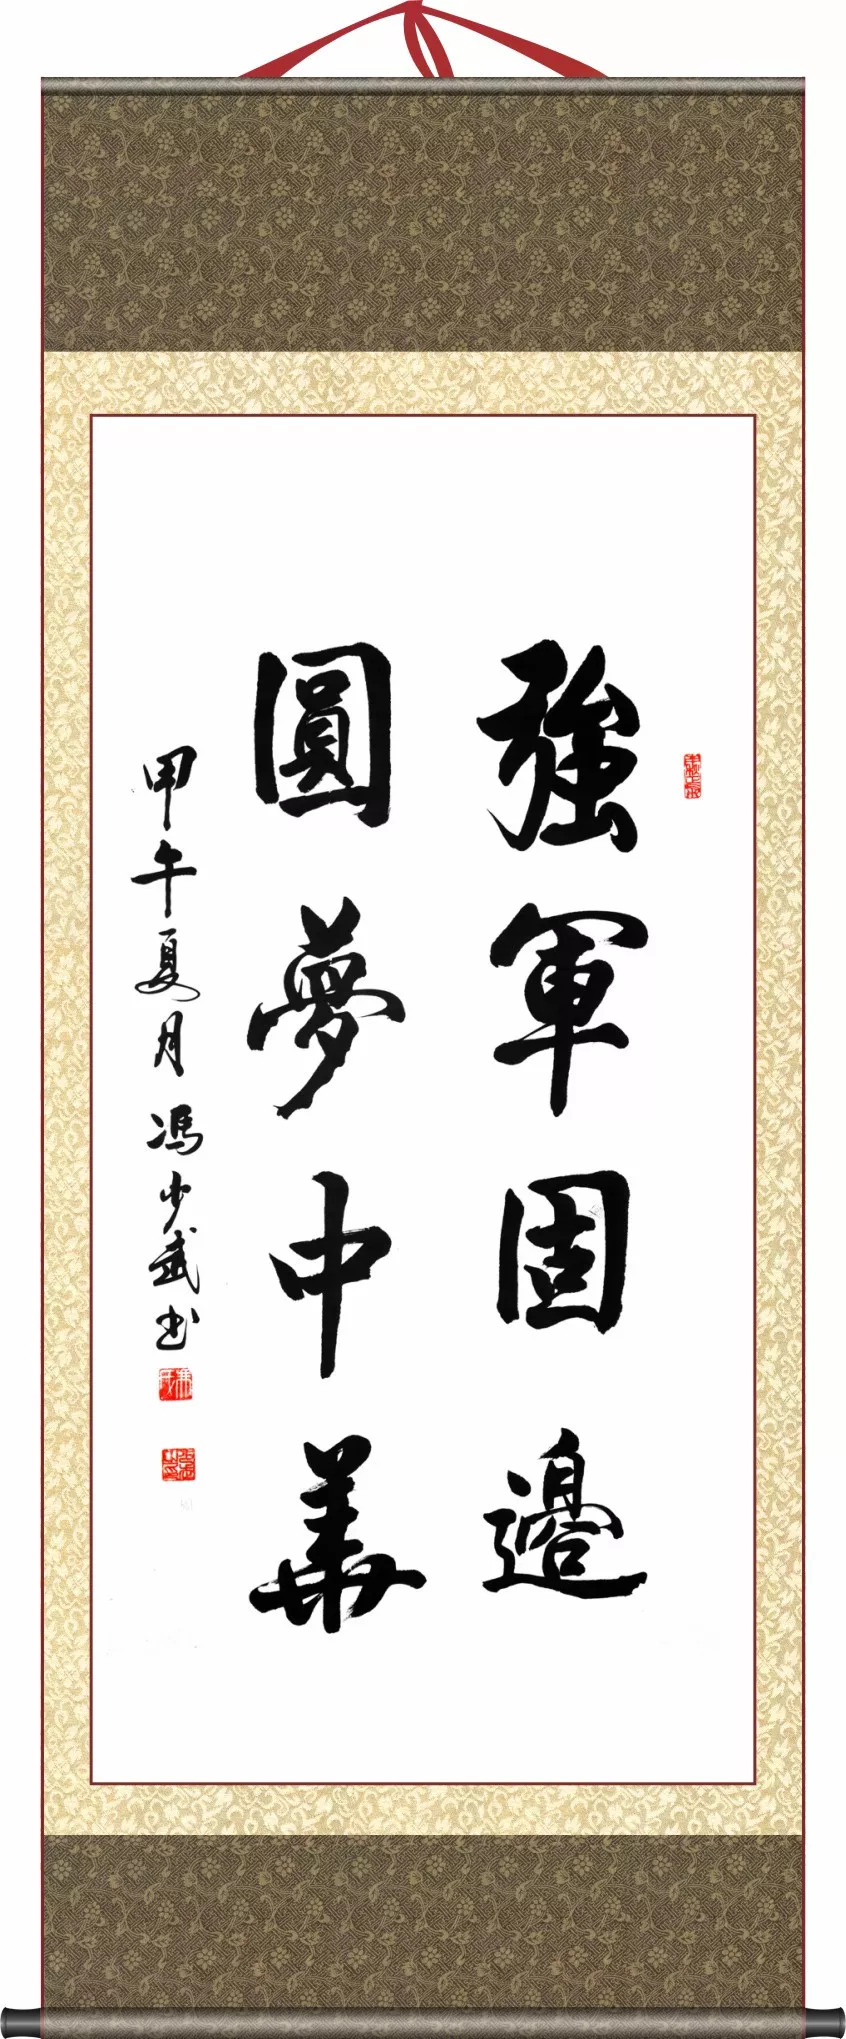 強軍固邊
圓夢中華
甲午夏月馮少武书